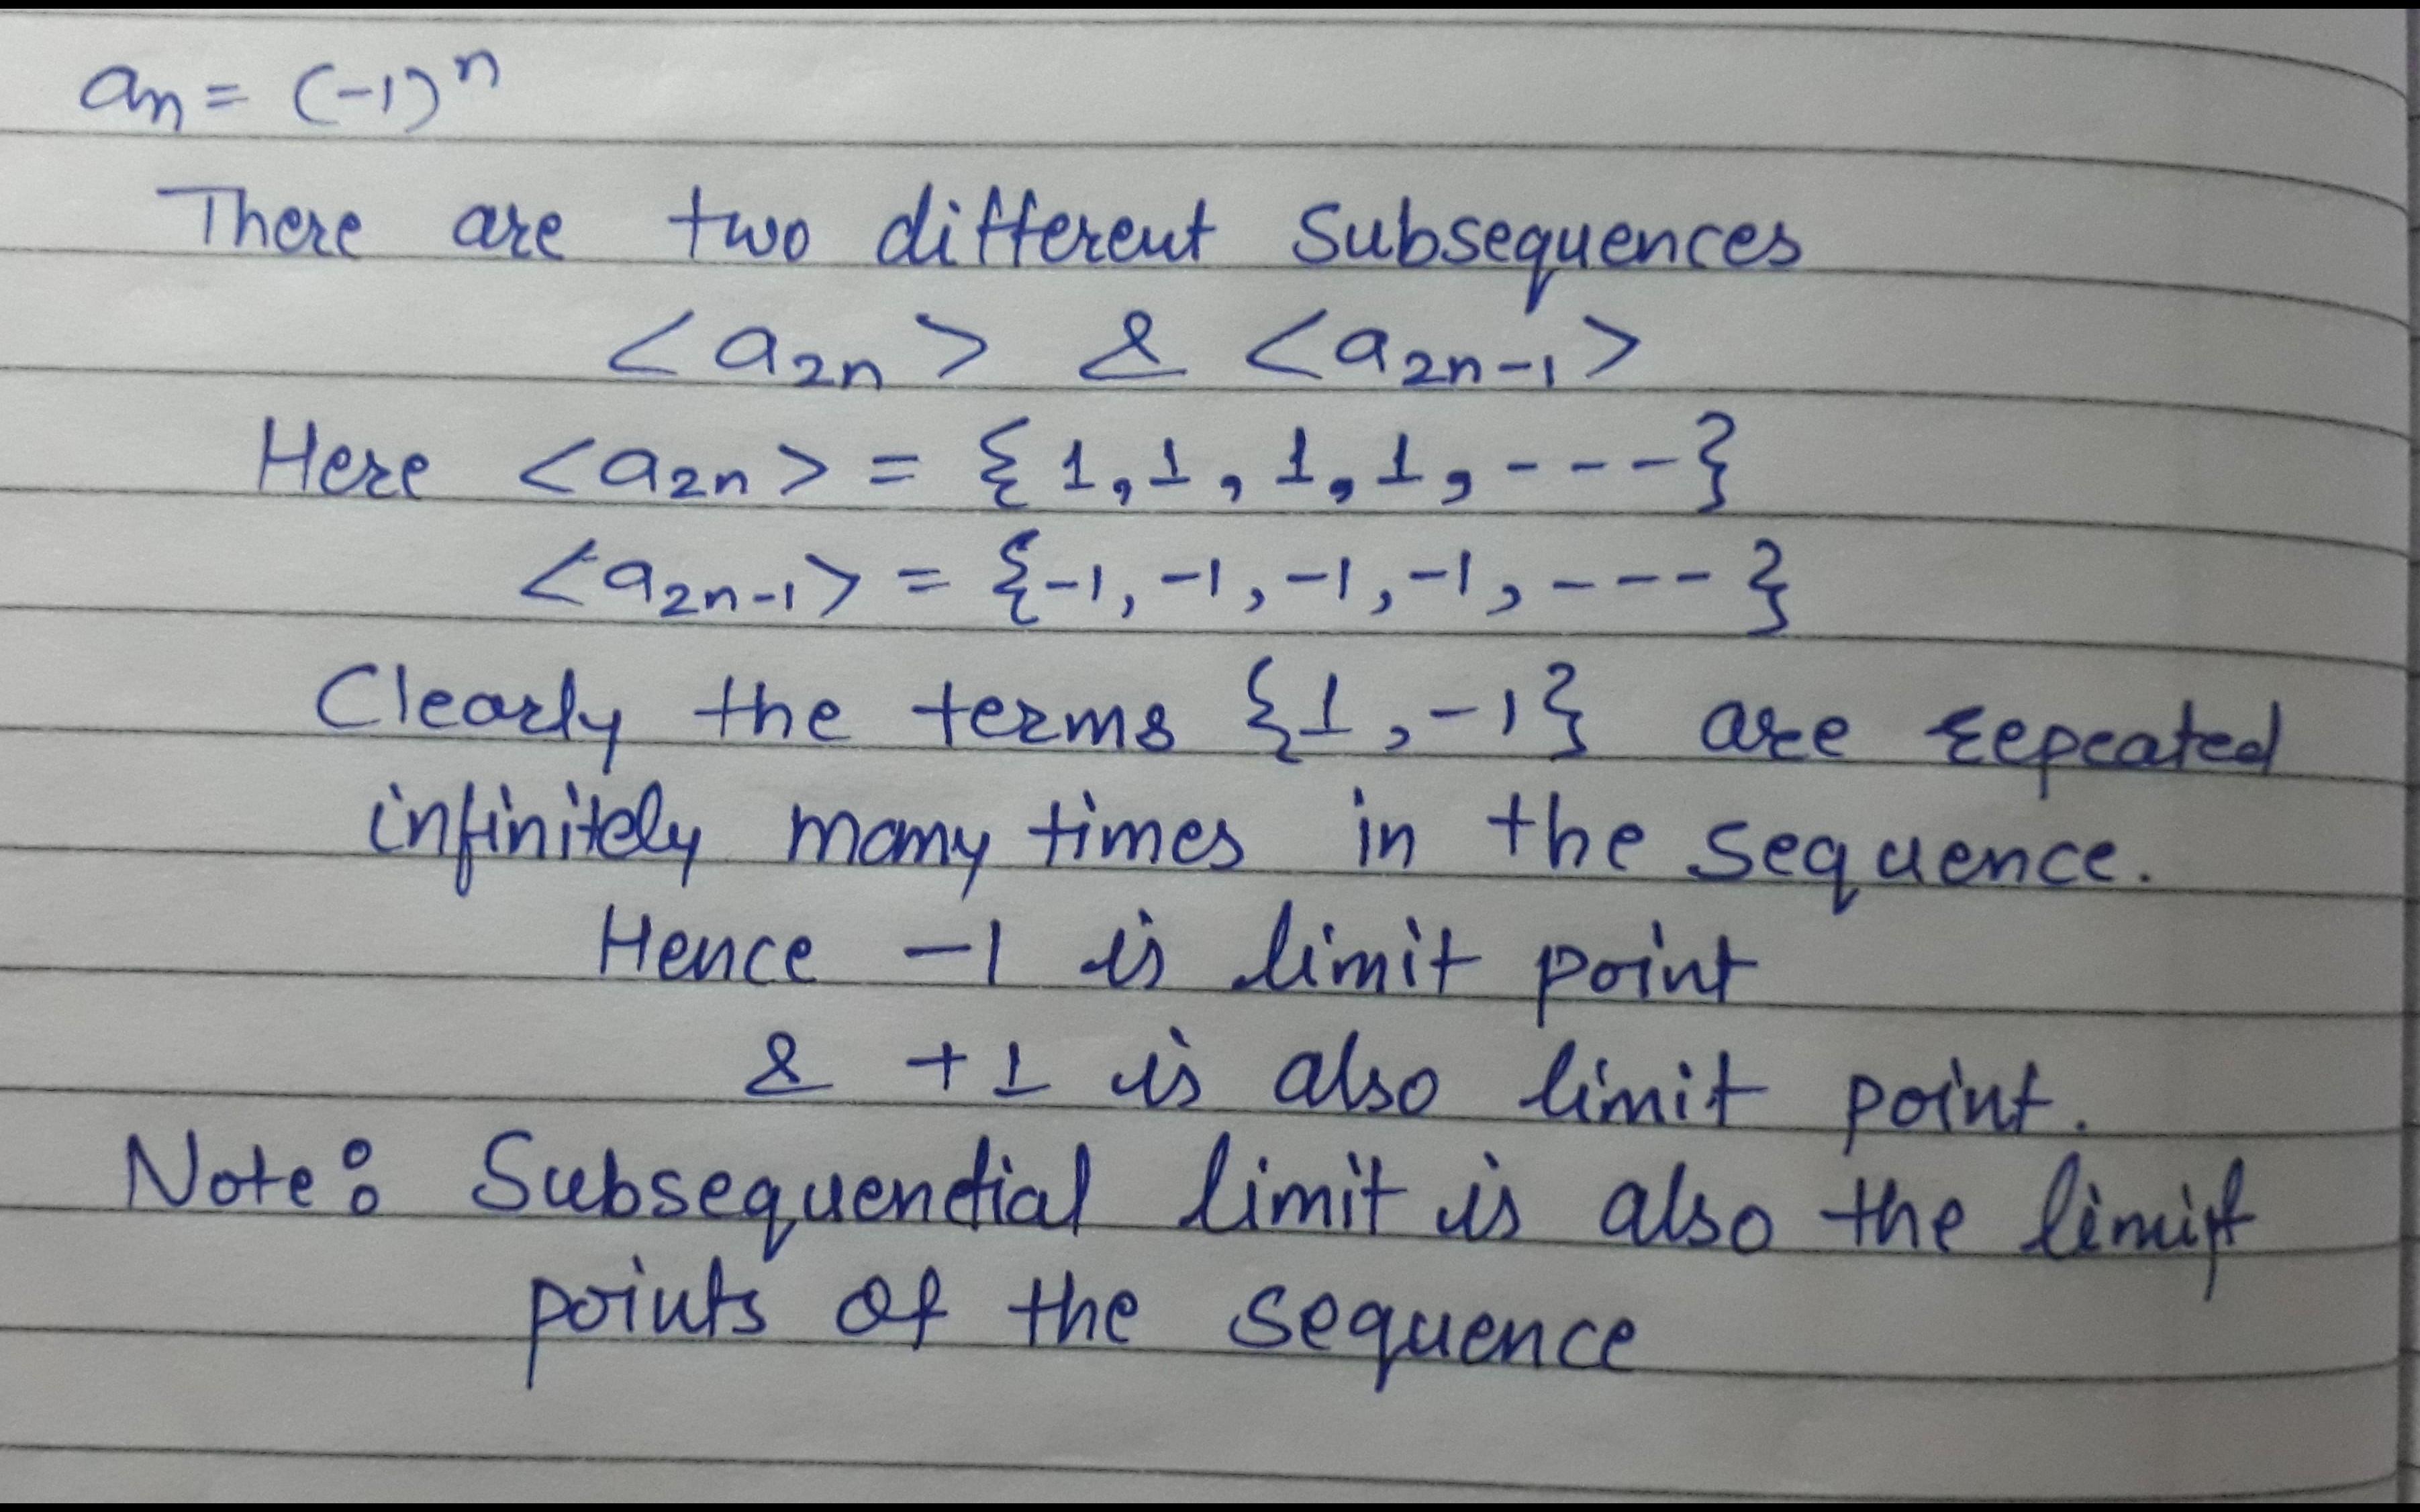 aₙ = (-1)ⁿ
There are two different Subsequences
<a₂ₙ> & <a₂ₙ₋₁>
Here <a₂ₙ> = {1, 1, 1, 1, - - - -}
<a₂ₙ₋₁> = {-1, -1, -1, -1, - - - -}
Clearly the terms {1, -1} are repeated
infinitely many times in the sequence.
Hence -1 is limit point
& +1 is also limit point.
Note: Subsequential limit is also the limit
points of the sequence